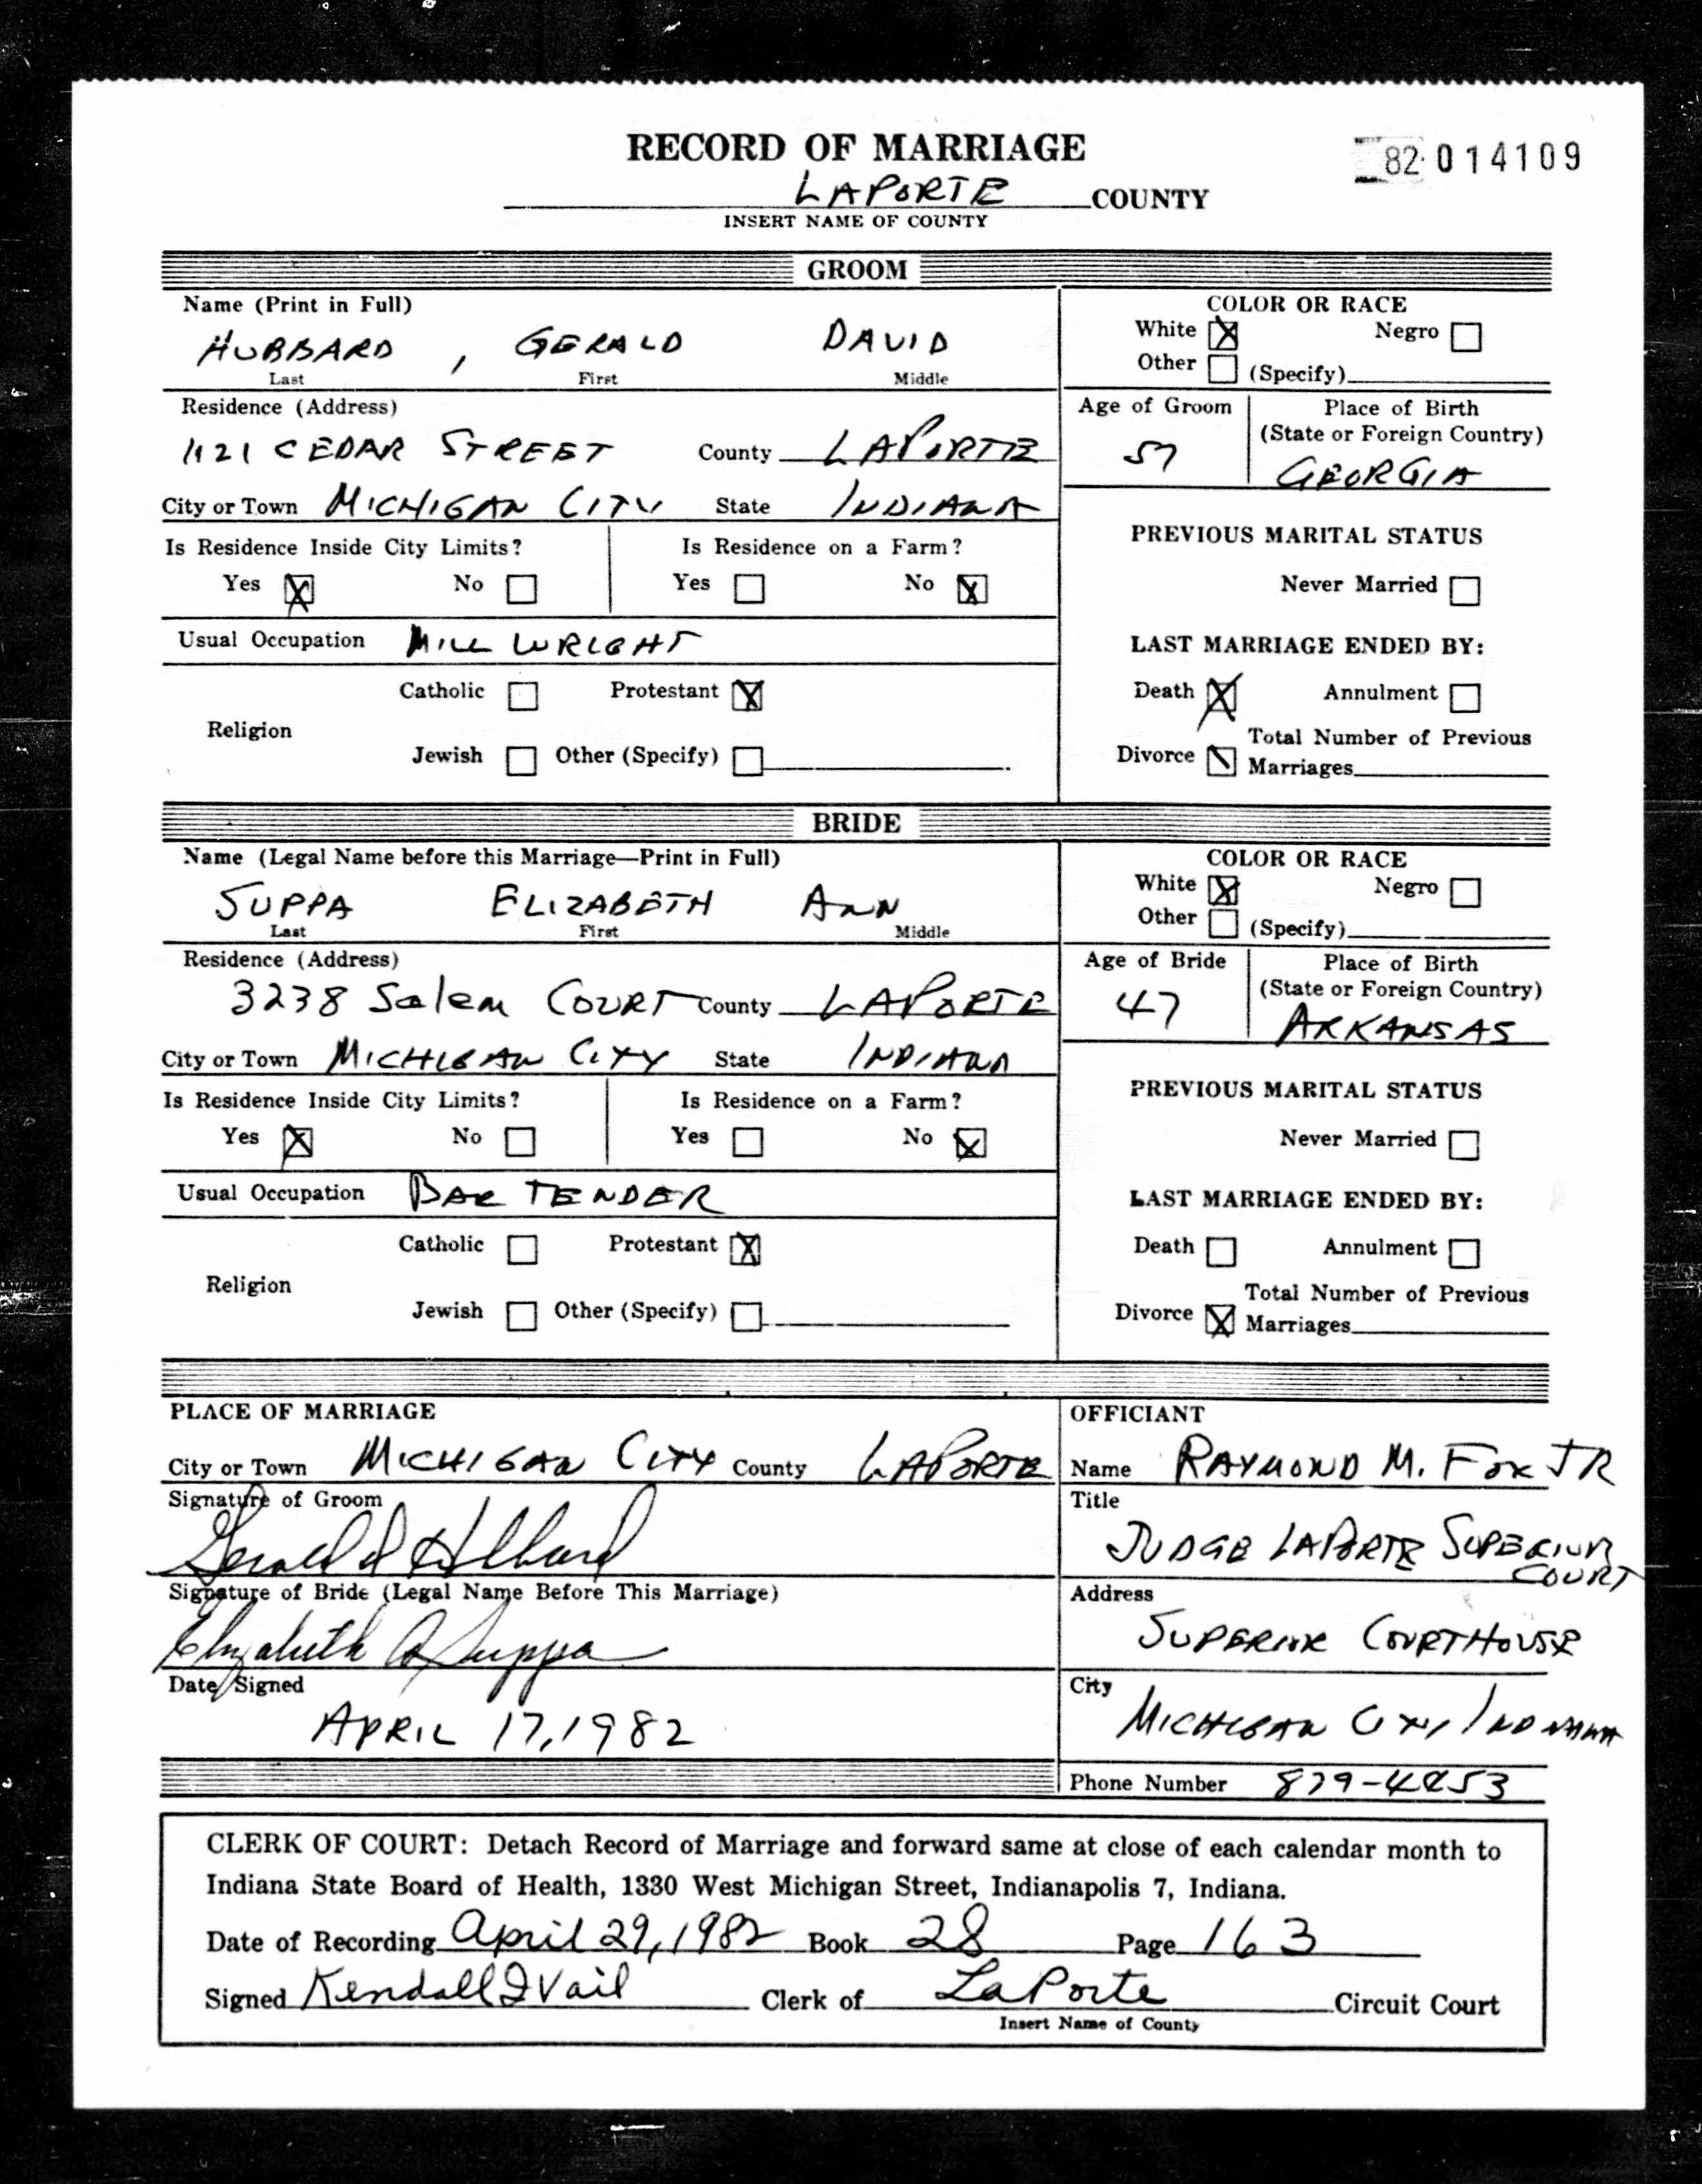 RECORD OF MARRIAGE
82 014109
LAPORTE COUNTY
INSERT NAME OF COUNTY
GROOM
Name (Print in Full)
HUBBARD, GERALD DAVID
Last First Middle
COLOR OR RACE
White X Negro
Other (Specify)
Residence (Address)
1121 CEDAR STREET County LAPORTE
City or Town MICHIGAN CITY State INDIANA
Age of Groom
57
Place of Birth
(State or Foreign Country)
GEORGIA
Is Residence Inside City Limits? Is Residence on a Farm?
Yes X No Yes No X
PREVIOUS MARITAL STATUS
Never Married
Usual Occupation MILL WRIGHT
LAST MARRIAGE ENDED BY:
Catholic Protestant X
Religion
Jewish Other (Specify)
Death X Annulment
Total Number of Previous
Divorce Marriages
BRIDE
Name (Legal Name before this Marriage—Print in Full)
SUPPA ELIZABETH ANN
Last First Middle
COLOR OR RACE
White X Negro
Other (Specify)
Residence (Address)
3238 Salem COURT County LAPORTE
City or Town MICHIGAN CITY State INDIANA
Age of Bride
47
Place of Birth
(State or Foreign Country)
ARKANSAS
Is Residence Inside City Limits? Is Residence on a Farm?
Yes X No Yes No X
PREVIOUS MARITAL STATUS
Never Married
Usual Occupation BAR TENDER
LAST MARRIAGE ENDED BY:
Catholic Protestant X
Religion
Jewish Other (Specify)
Death Annulment
Total Number of Previous
Divorce X Marriages
PLACE OF MARRIAGE
City or Town MICHIGAN CITY County LAPORTE
Signature of Groom
Gerald D Hubbard
Signature of Bride (Legal Name Before This Marriage)
Elizabeth A Suppa
Date Signed
APRIL 17, 1982
OFFICIANT
Name RAYMOND M. FOX JR
Title
JUDGE LAPORTE SUPERIOR
COURT
Address
SUPERIOR COURTHOUSE
City
MICHIGAN CITY, INDIANA
Phone Number
CLERK OF COURT: Detach Record of Marriage and forward same at close of each calendar month to
Indiana State Board of Health, 1330 West Michigan Street, Indianapolis 7, Indiana.
Date of Recording April 29, 1982 Book 28 Page 163
Signed Kendall I Vail Clerk of LaPorte Circuit Court
Insert Name of County